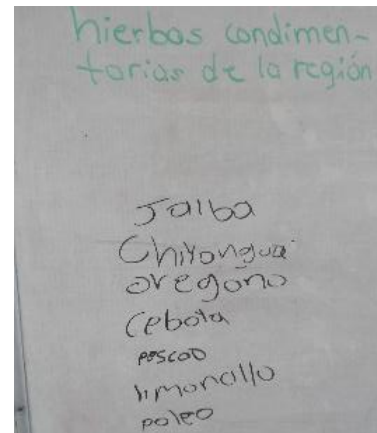 hierbas condimen-
tarias de la región
Jalba
Chiyangua
oregano
Cebolla
pescao
limoncillo
poleo